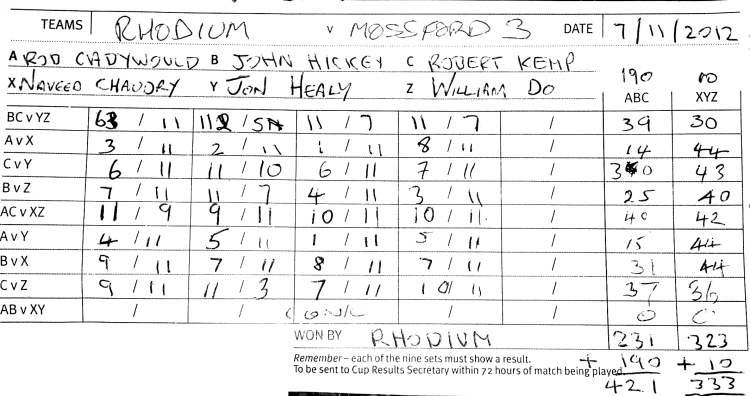 TEAMS RHODIUM V MOSSFORD 3 DATE 7/11/2012
A ROD CADYWOULD B JOHN HICKEY C ROBERT KEMP 190 10
X NAVEED CHAUDRY Y JON HEALY Z WILLIAM DO ABC XYZ
BC v YZ 63 / 11 11 / 5 11 / 7 11 / 7 / 39 30
A v X 3 / 11 2 / 11 1 / 11 8 / 11 / 14 44
C v Y 6 / 11 11 / 10 6 / 11 7 / 11 / 30 43
B v Z 7 / 11 11 / 7 4 / 11 3 / 11 / 25 40
AC v XZ 11 / 9 9 / 11 10 / 11 10 / 11 / 40 42
A v Y 4 / 11 5 / 11 1 / 11 5 / 11 / 15 44
B v X 9 / 11 7 / 11 8 / 11 7 / 11 / 31 44
C v Z 9 / 11 11 / 3 7 / 11 10 / 11 / 37 36
AB v XY / / / / 0 0
WON BY RHODIUM 231 323
Remember – each of the nine sets must show a result. + 190 + 10
To be sent to Cup Results Secretary within 72 hours of match being played. 421 333